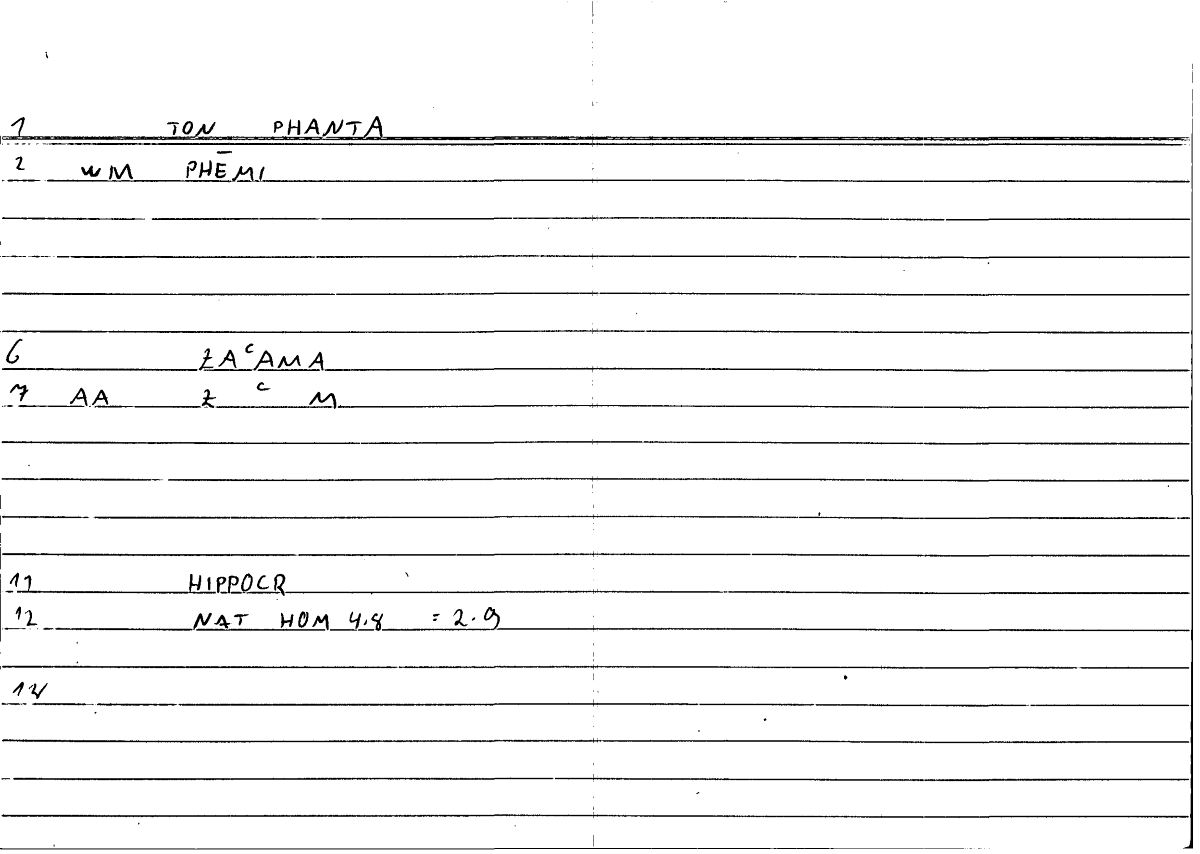 1 TON PHANTA
2 WM PHĒMI
6 ZAᶜAMA
7 AA Z ᶜ M
11 HIPPOCR
12 NAT HOM 4.8 = 2.9